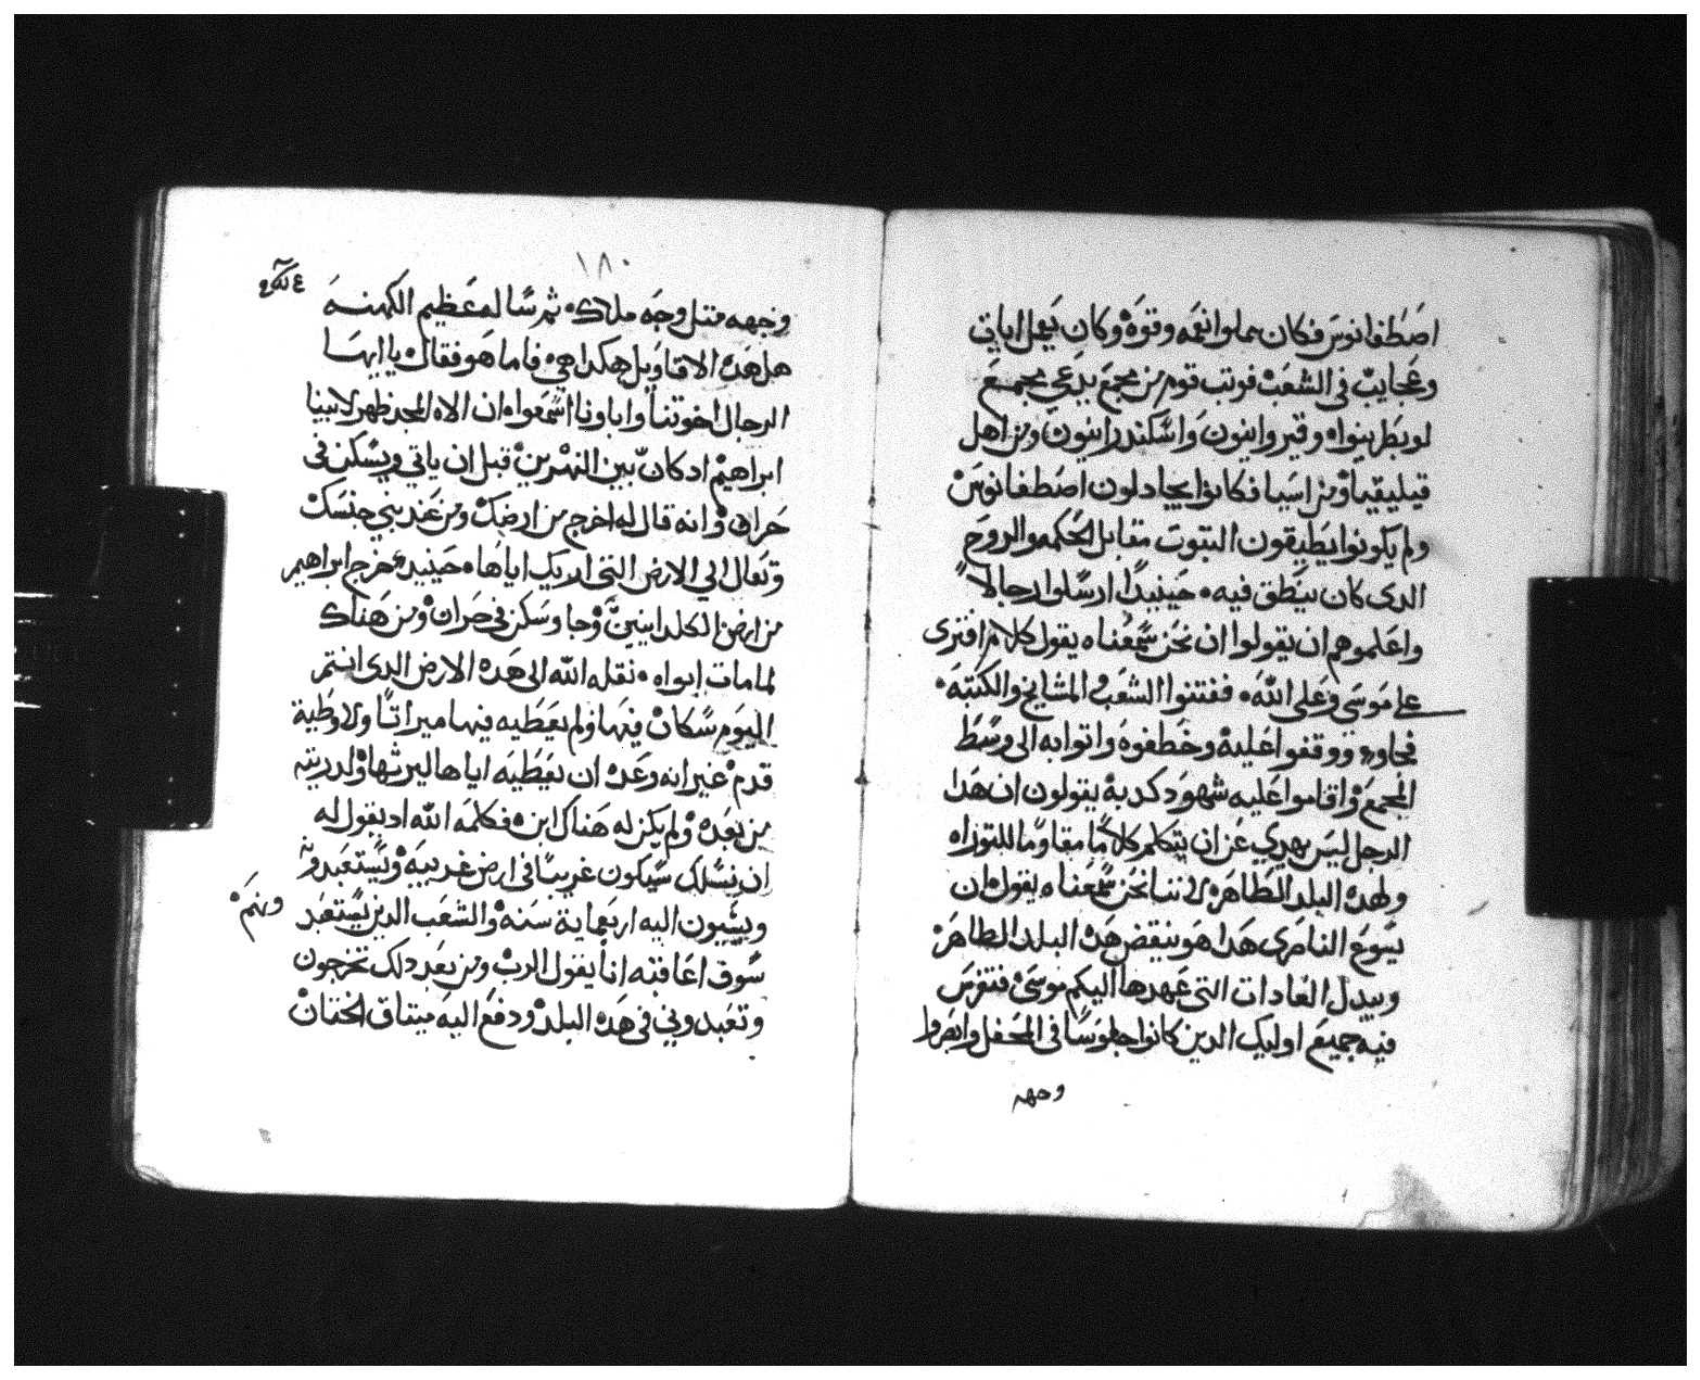 اصَطفانوسَ فكان مملوا نعمه وقوةْ وكان يَعمل ايات
وعَجايبْ في الشعَبْ فوتب قوم من مجمعَ يدعَي مجمعَ
لوبَطرينواه وقيروانيون وَاسَّكندرانيون ومن اهل
قيليقيا ومن اسَيا فكانوا يجادلون اصَطفانوسَ
ولم يكونوا يَطيقون التبوت مقابل الحكمه والروحَ
الدى كان يَنطق فيه ۰ حَينيدًا ارسَلوا رجالاً
واعَلموهم ان يقولوا ان نحَن سَّمعَناه يقول كلام افترى
على موَسَى وعَلى اللهَ ۰ ففتنوا الشعَب المشايخ والكَتبَه ۰
فجاوا ووقفوا عَليهْ وخَطفوهَ واتوا به الى وسَطَ
المجمعَ وْاقاموا عَليه شهوَد كدبهْ يقولون ان هَدا
الرجل ليسَ يهدي عَن ان يتكلم كلامًا مقاومًا للتوراه
ولهده البلد الطاهَره لاننا نحَن سَّمعَناه يقول ان
يسَوعَ الناصَرى هَدا هَو ينقض هَده البلد الطاهَرهْ
ويبدل العَادات التى عَهدها اليكم موسَىْ فتفرسَ
فيه جميعَ اوليك الدين كانوا جلوَسًا في المحَفل وابصَروا
وجهه
١٨٠
وجهه متل وجهَ ملاك ۰ ثم سَّاله عَظيم الكهنهَ
هل هَده الاقاويَل هكدا هي فاما هَو فقال يا ايهَا
الرجال اخوتنا واباونا اسَّمعَوا ان الاه المجد ظهر لابينا
ابراهيمْ اد كان بين النهَرينْ قبل ان ياتي ويسَّكن في
حَران وْانه قال له اخرج من ارضكْ ومن عَند بني جنسَكْ
وتعَال الي الارض التى اريك اياهَا ۰ حَينيد خرج ابراهيم
من ارض الكلدانيينَّ وْجا وسَكن في حَرانْ ومن هَناك
لما مات ابواه ۰ نقله الله الى هَده الارض الدى انتم
اليوَم سَّكانْ فيهَا ولم يعَطَيه فيها ميراتًا ولا وطية
قدمْ غير انه وعَده ان يعَطَيهَ اياها ليرثها ولدريته
من بعَدهْ ولم يكن له هَناك ابن ۰ فكلمهَ الله اد يقول له
ان نسَلك سَّيكون غريبًا في ارض غريبهَ وْيسَّتعَبدونهمَْ ۰
ويسَّيون اليه اربعَماية سَنهْ والشعَب الدين يسَّتعَبد
سَّوف اعَاقبه انا يقول الربْ ومن بعَد دلك تخرجون
وتعَبدوني في هَده البلدْ ودفعَ اليهَ ميتاق الختانْ